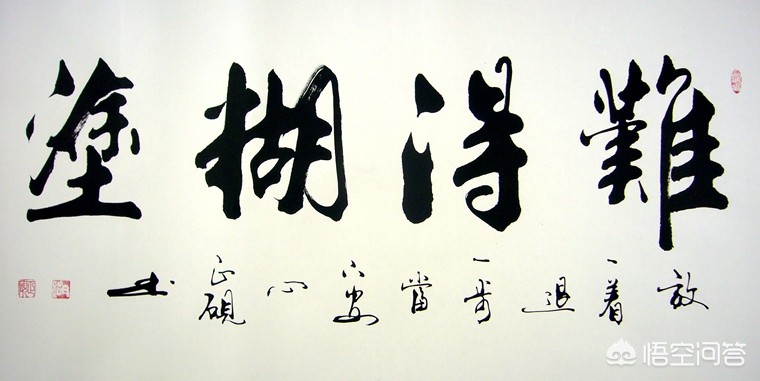 難得糊塗
放一着退一步當下安心
正硯书
悟空问答